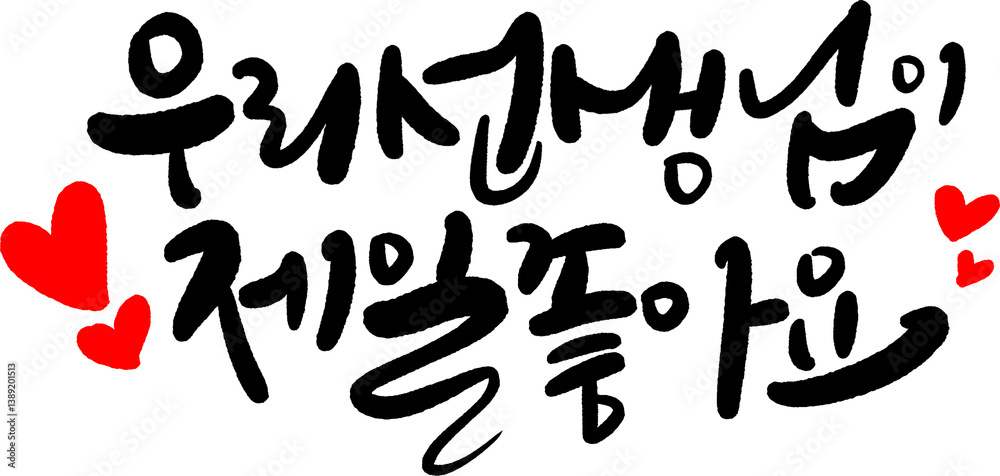 우리선생님이
제일좋아요
Adobe Stock | #1389201513